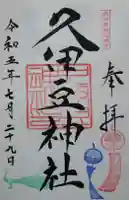 奉拝
久伊豆神社
令和五年七月二十九日